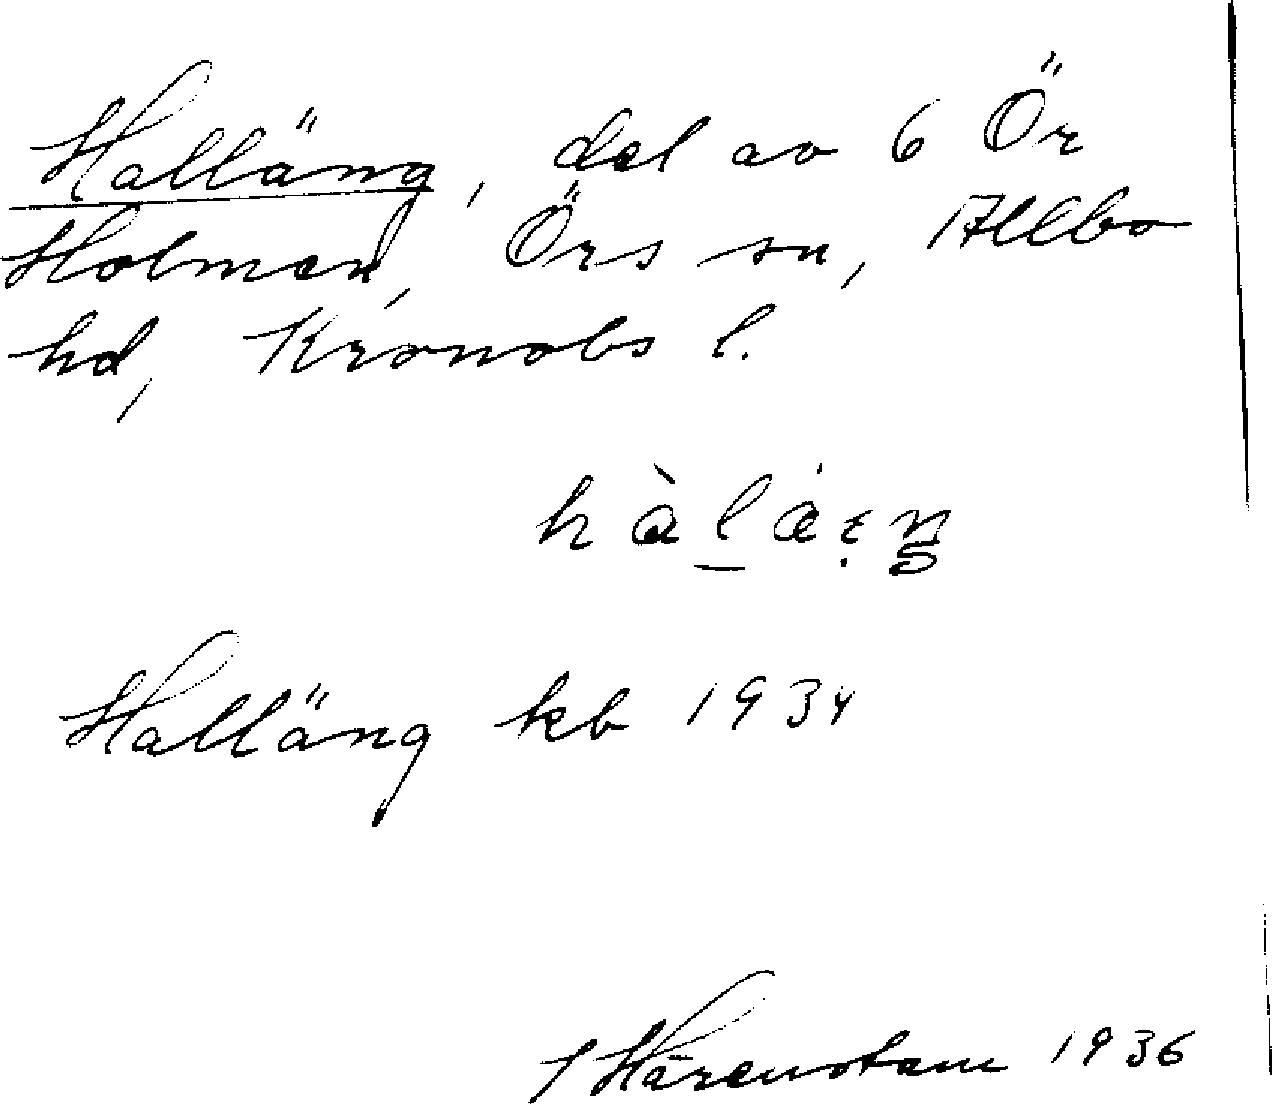 Halläng, del av 6 Ör
Holmen, Örs sn, Allbo
hd, Kronobs l.
Halläng kb 1934
Härenstam 1936